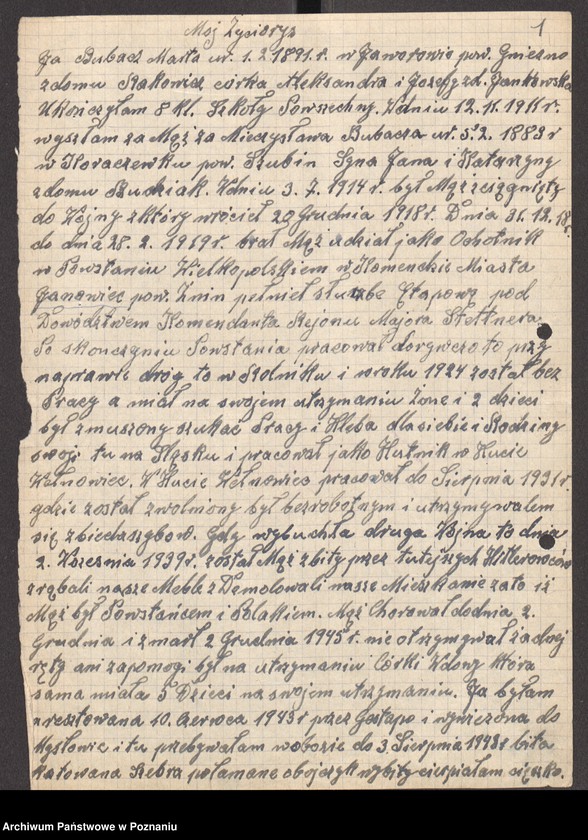 Mój Życiorys
1
Ja Bubacz Marta ur. 1. 2. 1891. r. w Jaworowie pow. Gniezno
z domu Rakowicz córka Aleksandra i Józefy z d. Jankowska
Ukończyłam 8 kl. Szkoły Powszechnej. W dniu 12. 11. 1911 r.
wyszłam za Mąż za Mieczysława Bubacza ur. 5. 2. 1883 r
w Noraczewku pow. Szubin Syna Jana i Katarzyny
z domu Budziak. W dniu 3. 7. 1914 r. był Mąż zciągnięty
do Wojny z który wrócieł 20 Grudnia 1918 r. Dnia 31. 12. 18 r.
do dnia 28. 2. 1919 r. brał Mąż udział jako Ochotnik
w Powstaniu Wielkopolskiem w Komendzie Miasta
Janowiec pow. Żnin pełnieł służbe Etapową pod
Dowództwem Komendanta Rejonu Majora Stettnera
Po skończyniu Powstania pracował dorywczo to przy
naprawie dróg to w Rolniku i w roku 1924 został bez
Pracy a miał na swojem utrzymaniu Żone i 2 dzieci
był zmuszony szukać Pracy i Hleba dla siebie i Rodziny
swoji tu na Śląsku i pracował jako Hutnik w Hucie
Wełnowiec. W Hucie Wełnowiec pracował do Sierpnia 1931 r.
gdzie został zwolniony był bezrobotnym i utrzymywałem
się z biedaszybow. Gdy wybuchła druga Wojna to dnia
2. Wrzesnia 1939 r. został Mąż zbity przez tutejszych Hitlerowców
zrąbali nasze Meble zDemolowali nasze Mieszkanie zato iż
Mąż był Powstańcem i Polakiem. Mąż Chorował do dnia 2.
Grudnia i zmarł 2 Grudnia 1945 r. nie otrzymywał żadnej
ręty ani zapomogi był na utrzymaniu Córki Wdowy Która
sama miała 5 Dzieci na swojem utrzymaniu. Ja byłam
aresztowana 10. Czerwca 1943 r przez Gestapo i wywieziona do
Mysłowic i tu przebywałam w obozie do 3. Sierpnia 1943 r bita
katowana Żebra połamane obojczyk wybity cierpiałam ciężko.
Archiwum Państwowe w Poznaniu